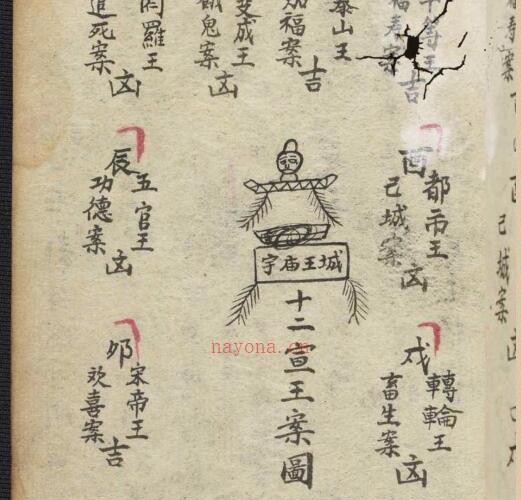 等王
福寿案
吉
泰山王
加福案
吉
變成王
餓鬼案
凶
閻羅王
追死案
凶
酉
都市王
己城案
凶
城王庙宇
十二宣王案圖
辰
五官王
功德案
凶
戌
轉輪王
畜生案
凶
卯
宋帝王
欢喜案
吉
酉
己城案
nayona.cn